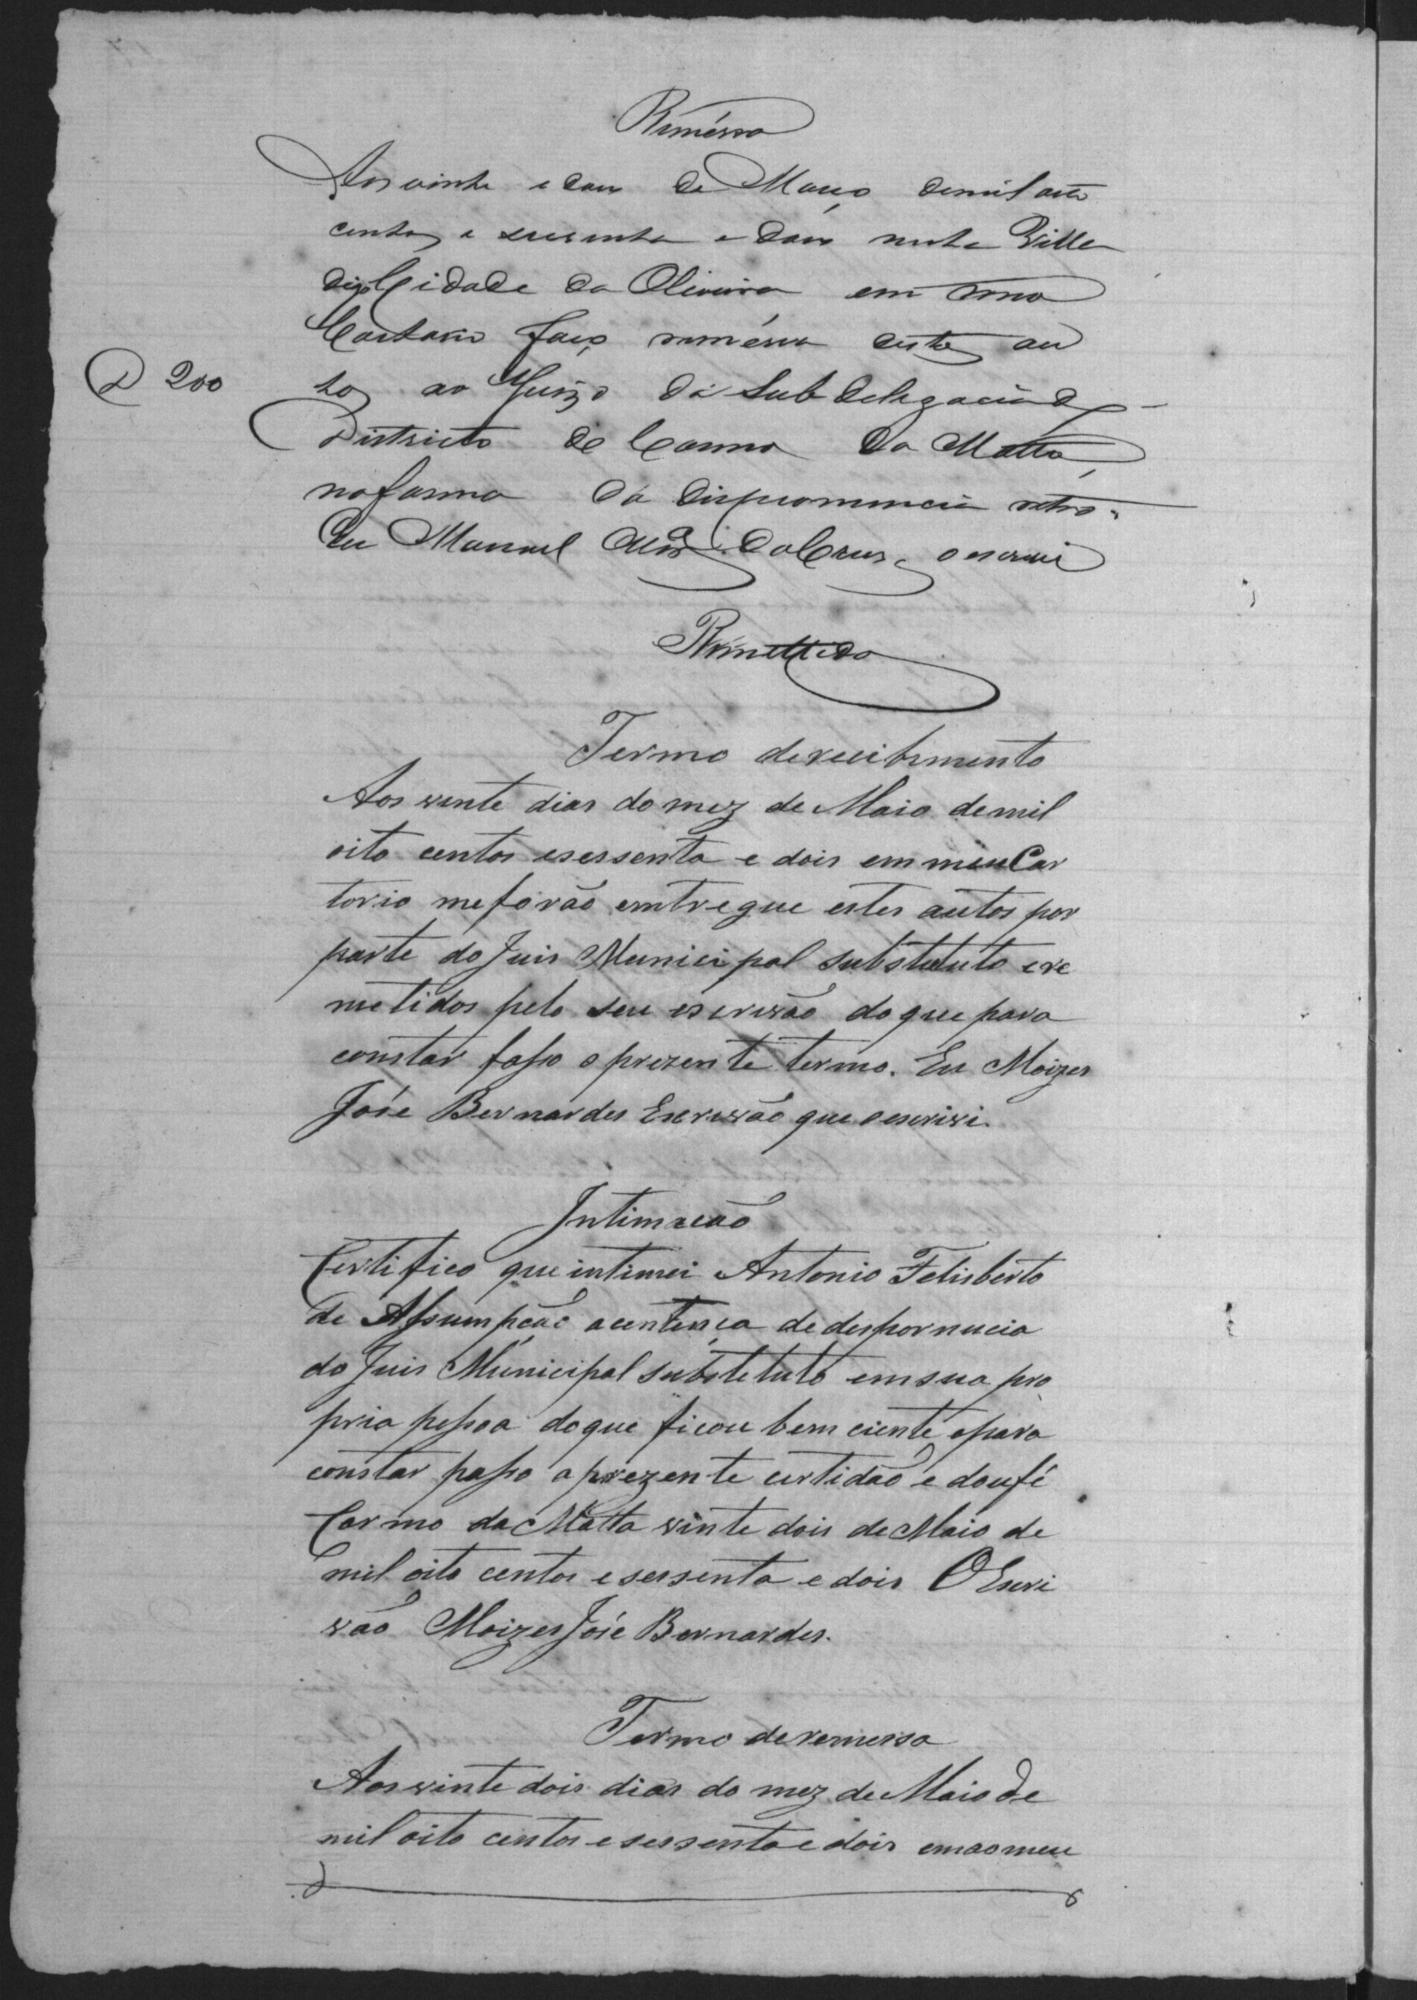 Remessa
Aos vinte e dous de Março de mil oito
centos e secenta e dous nesta Villa
digo Cidade da Oliveira em meo
Cartorio faço remessa destes au
D 200
tos ao Juizo da Subdelegacia do
Districto do Carmo da Matta,
na forma da dispronuncia retro.
Eu Manoel Alves da Cruz, o escrevi
Remettido
Termo de recibimento
Aos vente dias do mez de Maio de mil
oito centos e sessenta e dois em meu Car
torio me forão emtregue estes autos por
parte do Juis Municipal substetuto e re
metidos pelo seu escrivão do que para
constar fasso o prezente termo. Eu Moizes
José Bernardes Escrivão que o escrivi.
Intimação
Certifico que intimei Antonio Felisberto
de Assumpção a centença de despornucia
do Juis Municipal substetuto em sua pro
pria pessoa do que ficou bem ciente e para
constar passo a prezente certidão e dou fé
Carmo da Matta vinte dois de Maio de
mil oito centos e sessenta e dois O Escri
vão Moizes José Bernardes.
Termo de remessa
Aos vinte dois dias do mez de Maio de
mil oito centos e sessenta e dois em o meu